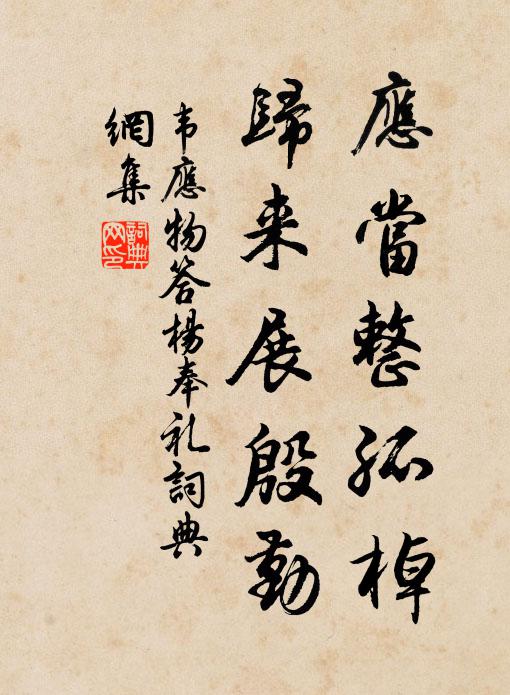 應當整孤棹
歸来展殷勤
韦應物答楊奉礼詞典
網集
詞典
网印